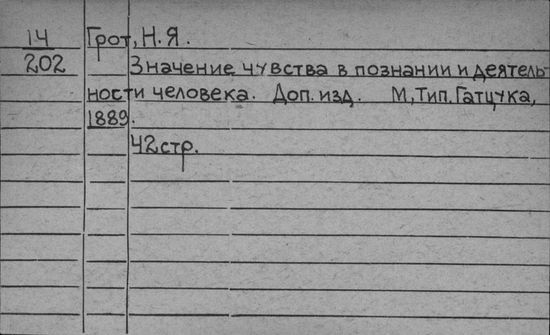 14 Грот, Н.Я.
202 Значение чувства в познании и деятель-
ности человека. Доп. изд. М, Тип. Гатцука,
1889.
42 стр.